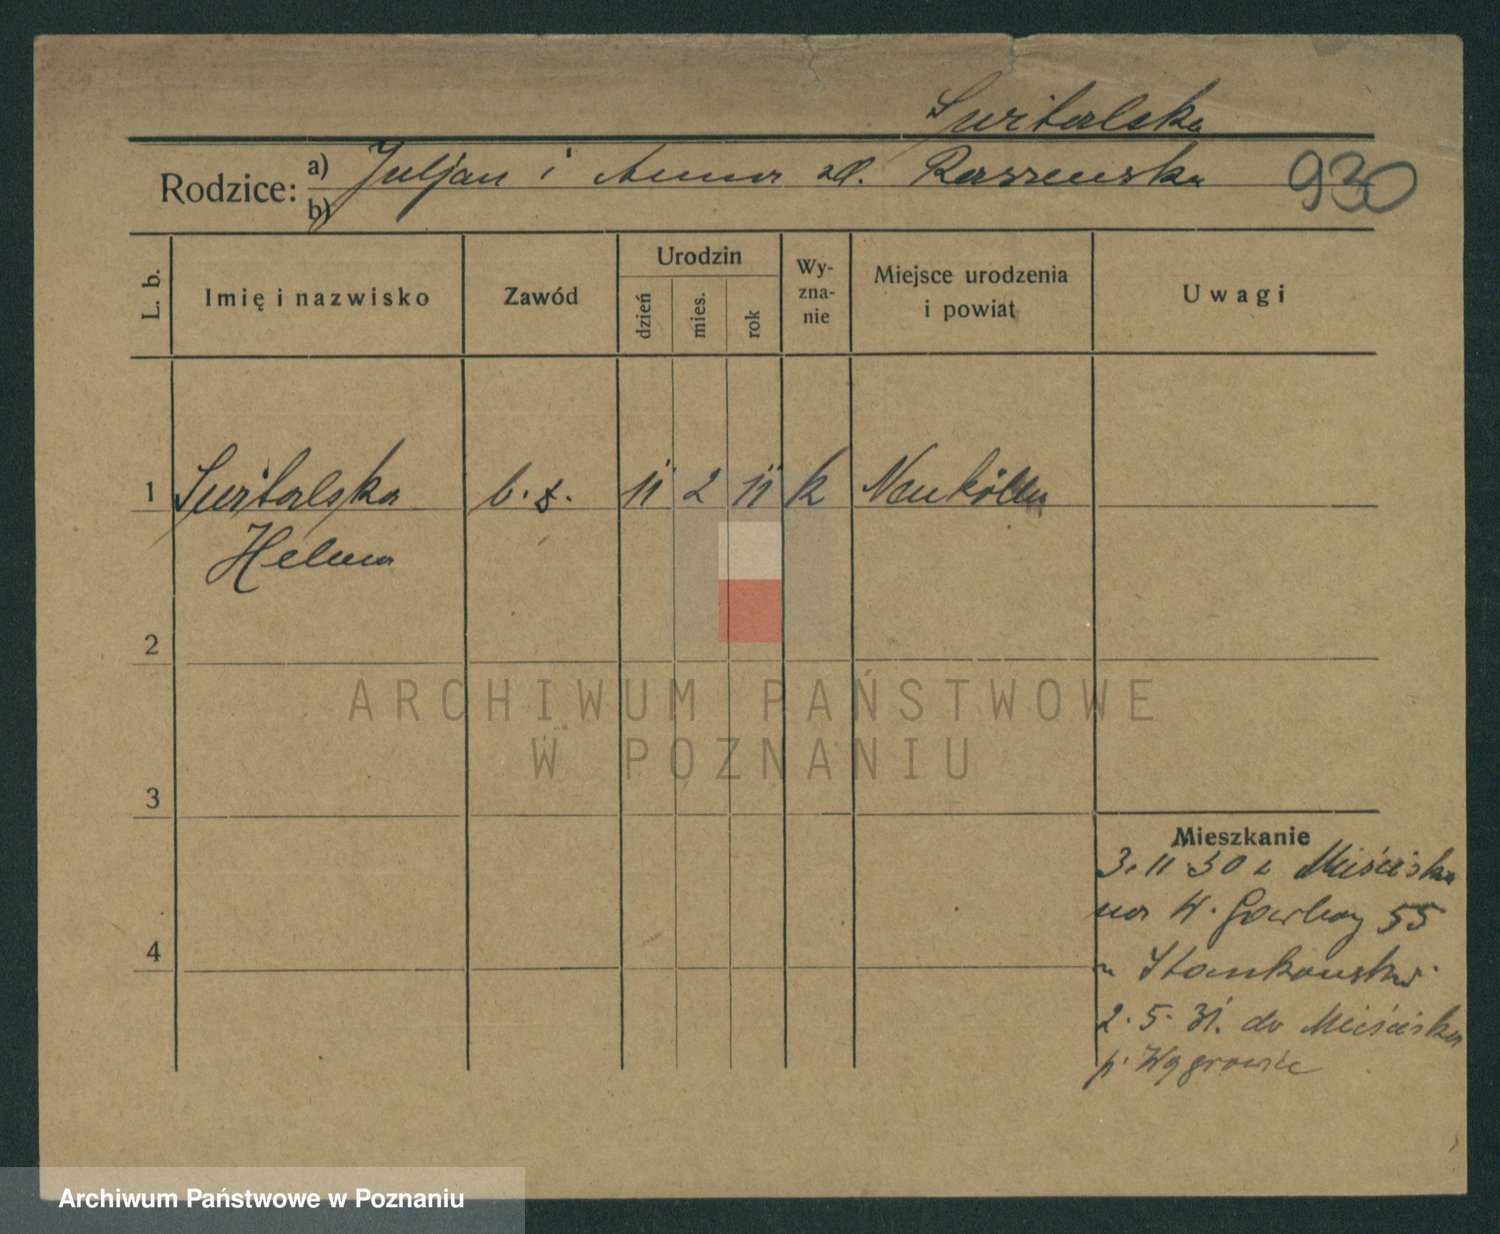 Switalska
Rodzice: a) Juljan i Anna zd. Raszewska 930
b)
L. b. Imię i nazwisko Zawód Urodzin dzień mies. rok Wy-zna-nie Miejsce urodzenia i powiat Uwagi
1 Switalska b. z. 11 2 11 k Neukölln
Helena
2
3
4
Mieszkanie
3. 11 30 z Mieściska
na W. Garbary 55
Stankowski
2. 5. 31. do Mieściska
p. Wągrowiec
ARCHIWUM PAŃSTWOWE
W POZNANIU
Archiwum Państwowe w Poznaniu